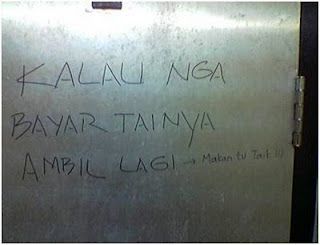 KALAU NGA
BAYAR TAINYA
AMBIL LAGI → Makan tu Taik !!!